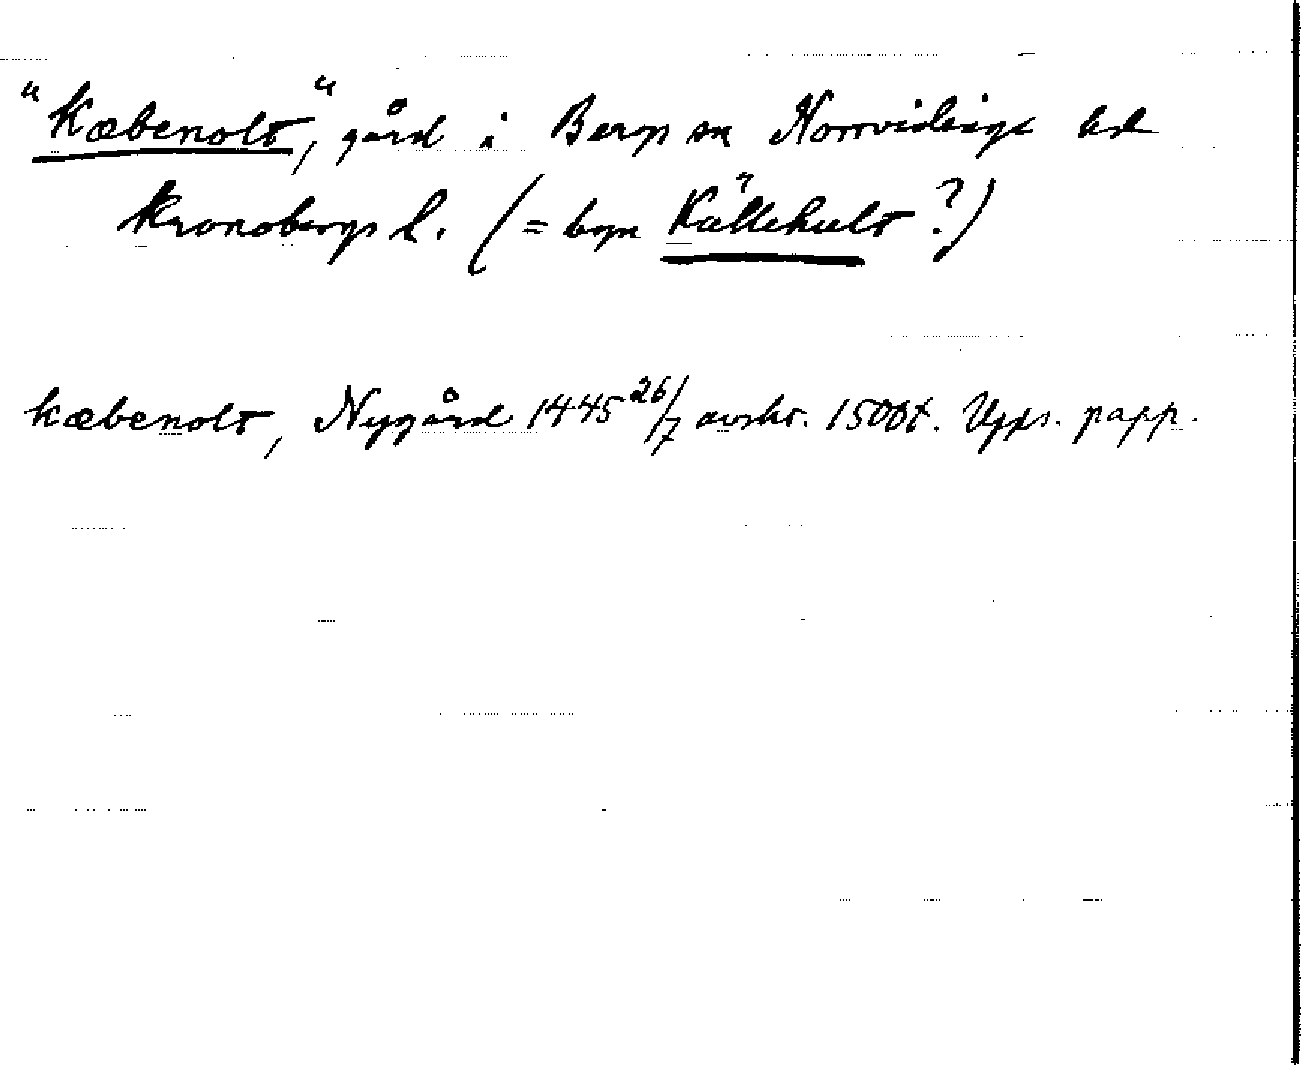 "Kæbenolt", gård i Bergs sn Norrvidinge hd
Kronobergs l. (= byn Källehult?)
kæbenolt, Nygård 1445 26/7 avskr. 1500t. Upps. papp.